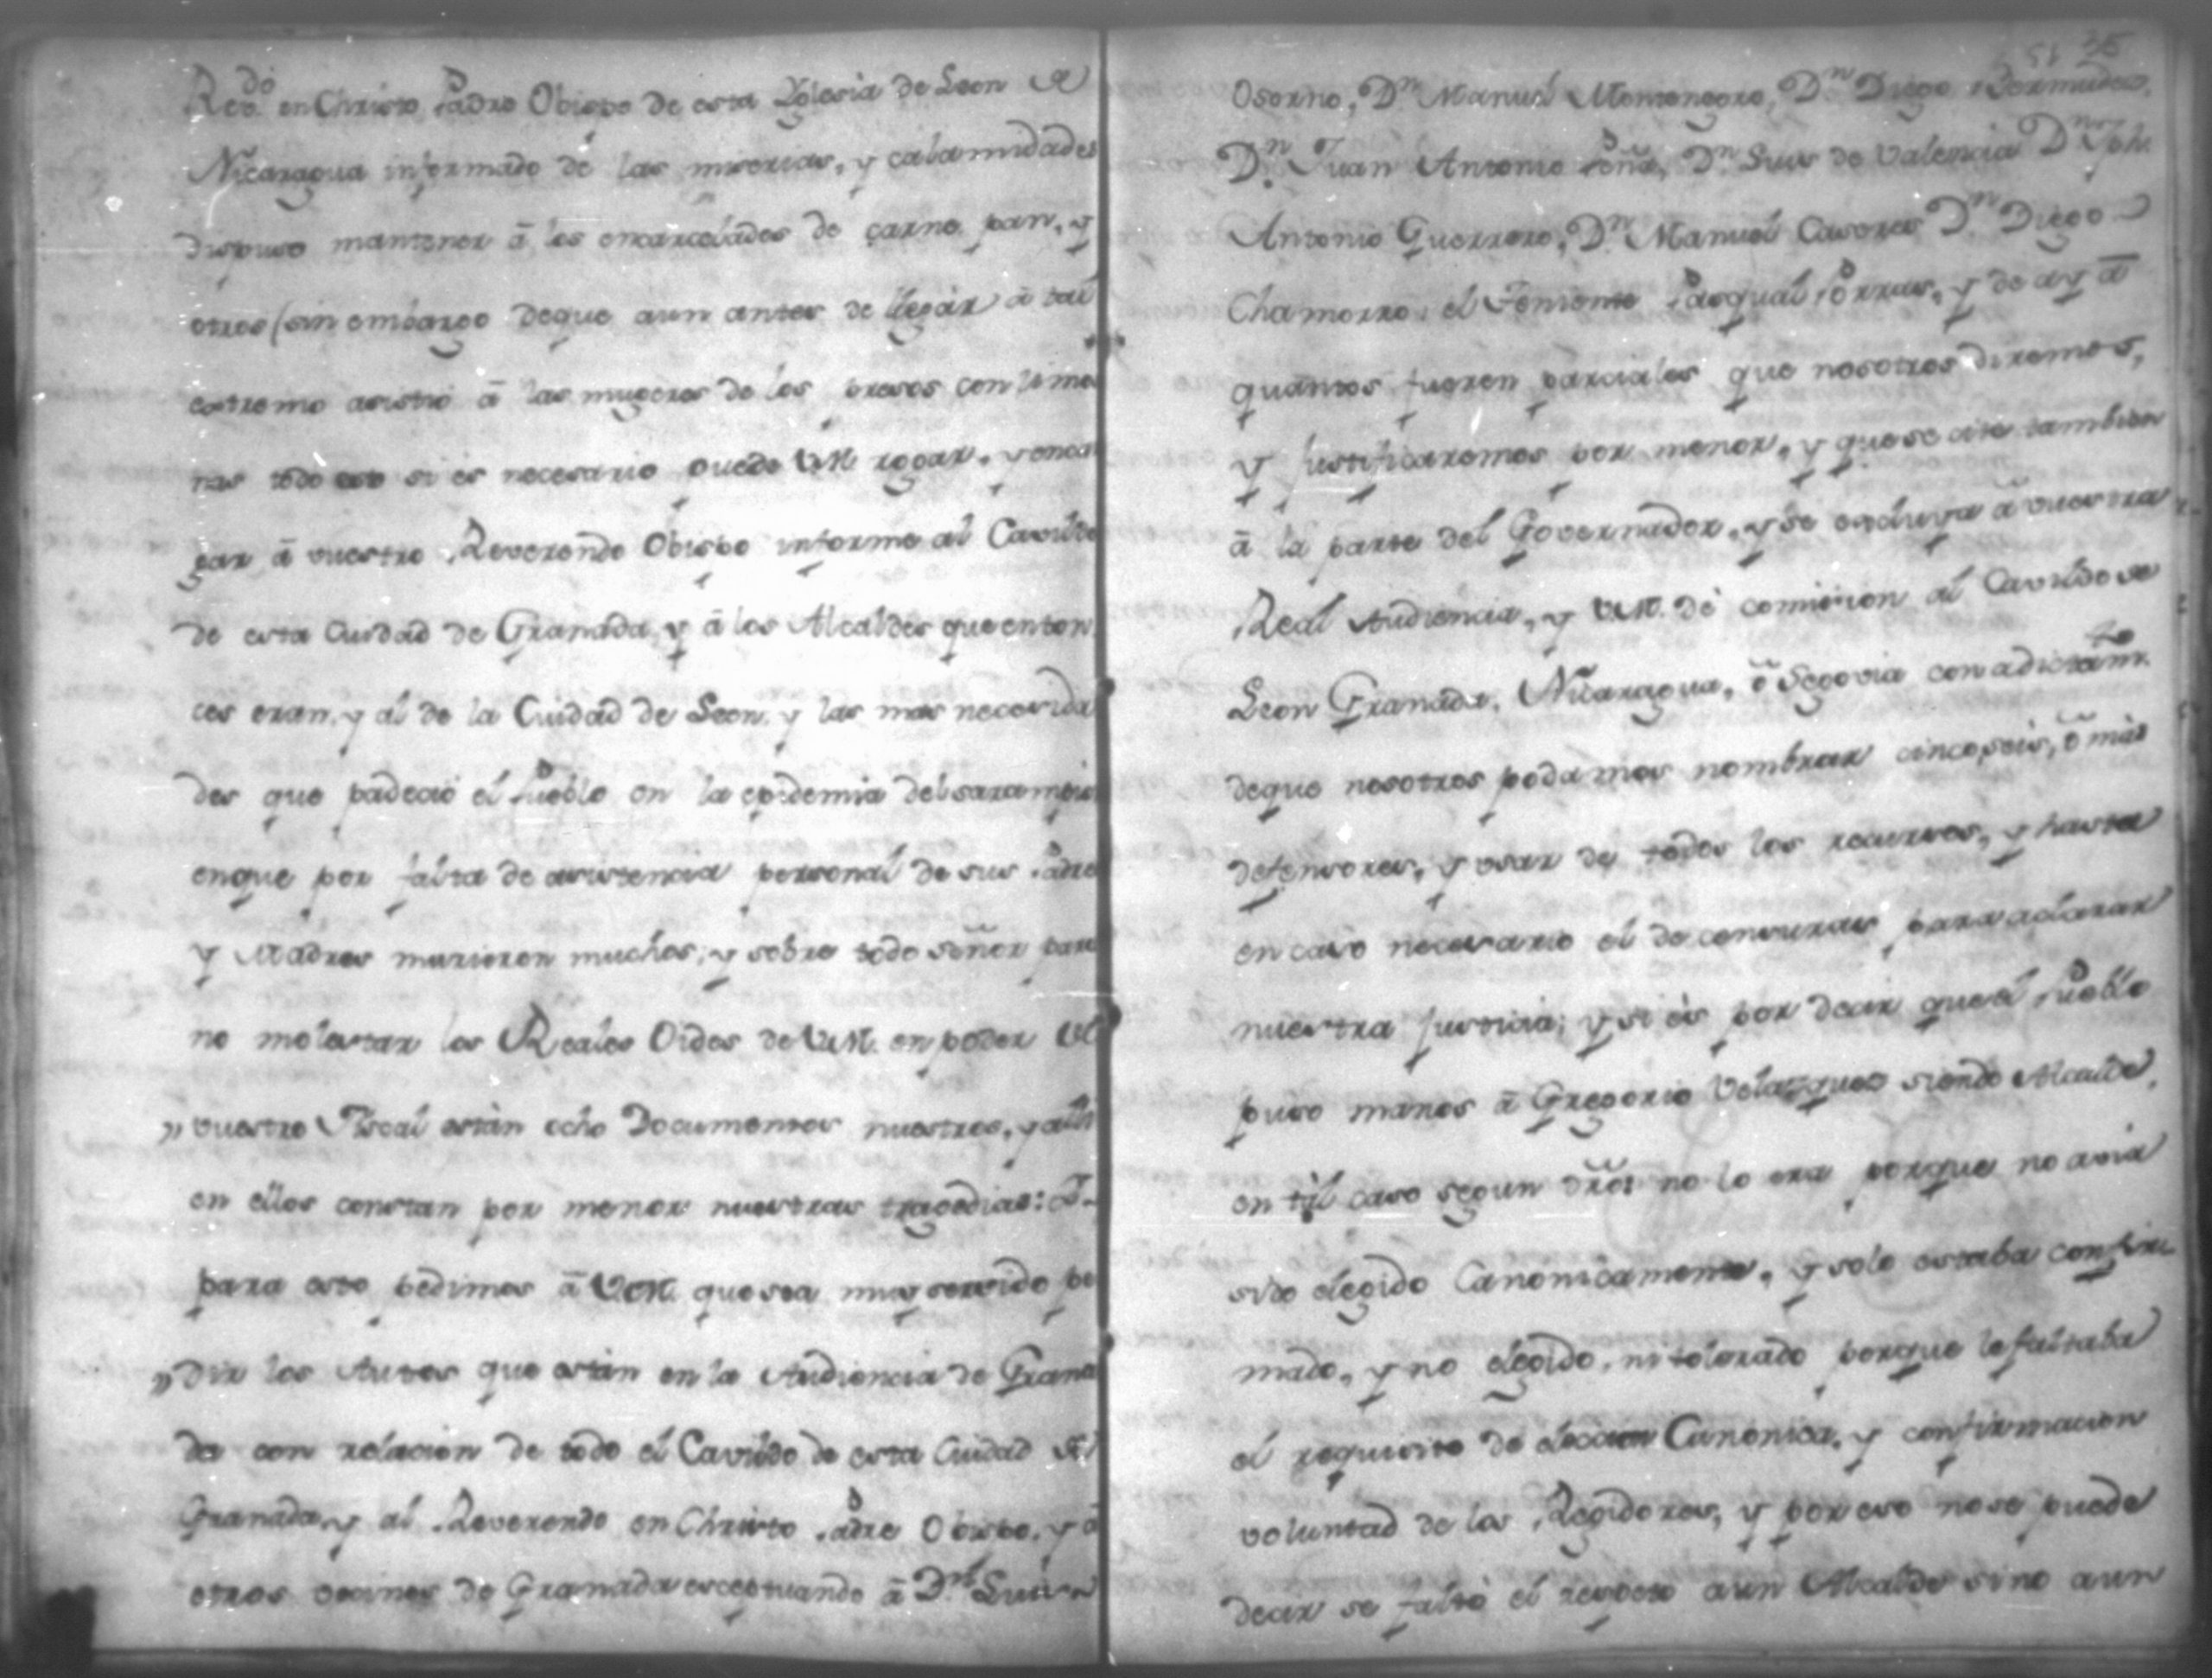 Rev.do en Christo Padre Obispo de esta Yglesia de Leon de
Nicaragua informado de las miserias, y calamidades
dispuso mantener â los encarcelados de carne pan, y
otros (sin embargo deque aun antes de llegar â tal
extremo asistió â las mugeres de los presos con limos
nas todo esto si es necesario puede V.M. rogar, y encar
gar â vuestro Reverendo Obispo informe al Cavildo
de esta Ciudad de Granada, y â los Alcaldes que enton
ces eran, y al de la Ciudad de Leon, y las mas necesida
des que padeció el Pueblo en la epidemia del sarampion
enque por falta de asistencia personal de sus Padres
y Madres murieron muchos; y sobre todo señor para
no molestar los Reales Oidos de V.M. en poder de
" vuestro Fiscal estàn ocho Documentos nuestros, y alli
en ellos constan por menor nuestras tragedias:
para esto pedimos â V.M. que sea muy servido pe
" dir los Autos que estàn en la Audiencia de Grana
da con relacion de todo el Cavildo de esta Ciudad de
Granada, y al Reverendo en Christo Padre Obispo, y â
otros vecinos de Granada exceptuando â D.n Luis
Osorno, D.n Manuel Montenegro, D.n Diego Bermudez,
D.n Juan Antonio Peña, D.n Luis de Valencia D.n Jph.
Antonio Guerrero, D.n Manuel Caseres D.n Diego
Chamorro, el Teniente Pasqual Porras, y de ay â
quantos fueren parciales que nosotros diremos,
y justificaremos por menor, y que se cite tambien
â la parte del Governador, y se excluya â vuestra
Real Audiencia, y V.M. dé comision al Cavildo de
Leon Granada, Nicaragua, ô Segovia con adictam.to
deque nosotros podamos nombrar cinco, seis, ô más
defensores, y usar de todos los recursos, y hasta
en caso necesario el de censuras para aclarar
nuestra justicia; y si és por decir que el Pueblo
puso manos â Gregorio Velazquez siendo Alcalde,
en tál caso segun dro: no lo era porque no avia
sido elegido Canonicamente, y solo estaba confir
mado, y no elegido, ni tolerado porque le faltaba
el requisito de eleccion Canonica, y confirmacion
voluntad de los Regidores, y por eso no se puede
decir se faltó el respeto a un Alcalde sino a un